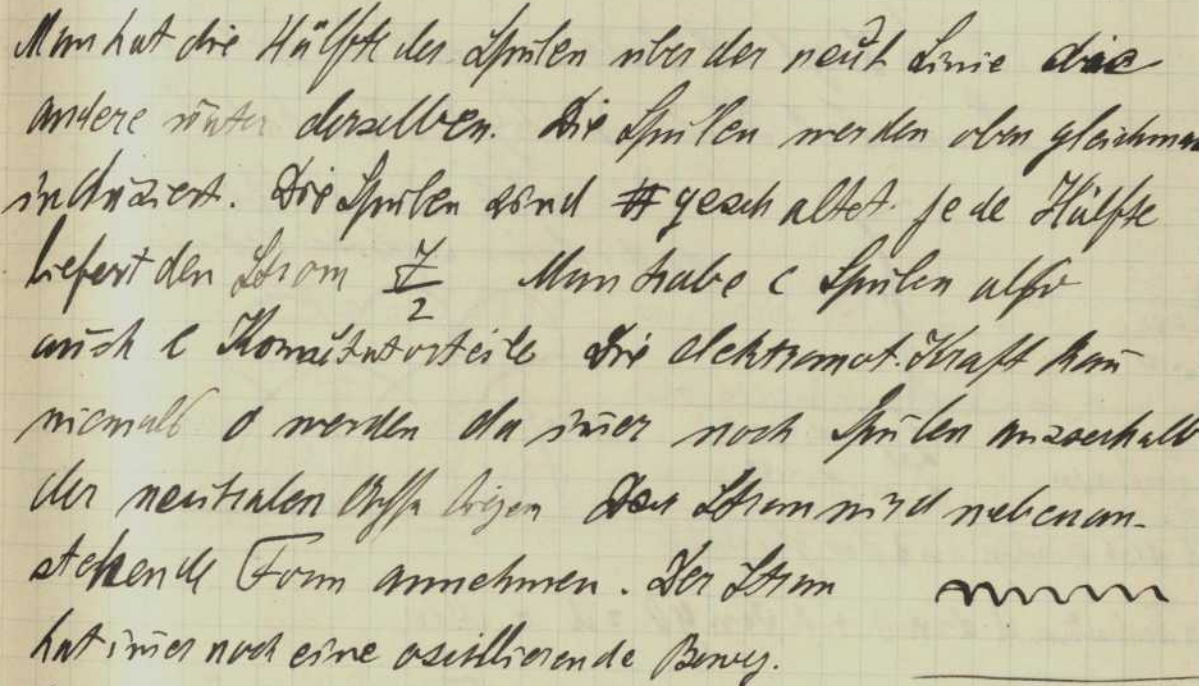 Man hat die Hälfte der Spulen über der neut Linie die
andere unter derselben. Die Spulen werden oben gleichmä
induziert. Die Spulen sind # geschaltet. jede Hälfte
liefert den Strom J/2 Man habe c Spulen also
auch c Komutatorteile Die elektromot. Kraft kan̄
niemals 0 werden da im̄er noch Spulen ausserhalb
der neutralen liegen Der Strom wird nebenan-
stehende Form annehmen. Der Strom
hat im̄er noch eine oszillierende Beweg.